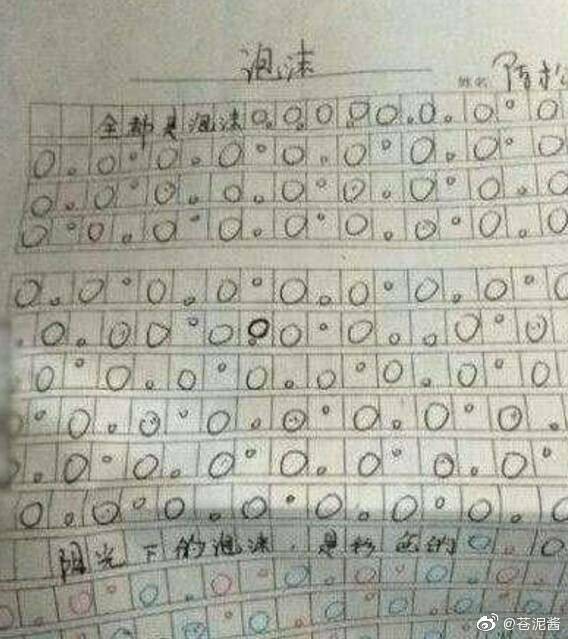 泡沫
姓名
全部是泡沫
阳光下的泡沫,是彩色的
@苍泥酱